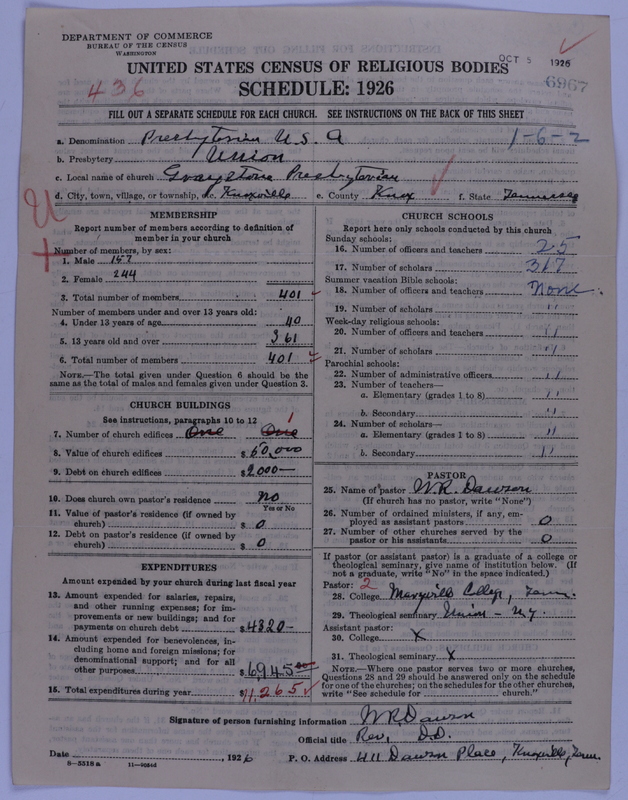 DEPARTMENT OF COMMERCE
BUREAU OF THE CENSUS
WASHINGTON
OCT 5 1926
6967
436
UNITED STATES CENSUS OF RELIGIOUS BODIES
SCHEDULE: 1926
FILL OUT A SEPARATE SCHEDULE FOR EACH CHURCH. SEE INSTRUCTIONS ON THE BACK OF THIS SHEET
a. Denomination Presbyterian U.S.A 1-6-2
b. Presbytery Union
c. Local name of church Graystone Presbyterian
d. City, town, village, or township, etc. Knoxville e. County Knox f. State Tennessee
MEMBERSHIP
Report number of members according to definition of
member in your church
Number of members, by sex:
1. Male 157
2. Female 244
3. Total number of members 401
Number of members under and over 13 years old:
4. Under 13 years of age 40
5. 13 years old and over 361
6. Total number of members 401
NOTE.—The total given under Question 6 should be
same as the total of males and females given under Question 3.
CHURCH BUILDINGS
See instructions, paragraphs 10 to 12
7. Number of church edifices One One 1
8. Value of church edifices $ 50,000
9. Debt on church edifices $ 2000—
10. Does church own pastor's residence No
Yes or No
11. Value of pastor's residence (if owned by
church) $ 0
12. Debt on pastor's residence (if owned by
church) $ 0
EXPENDITURES
Amount expended by your church during last fiscal year
13. Amount expended for salaries, repairs,
and other running expenses; for im-
provements or new buildings; and for
payments on church debt $ 4320—
14. Amount expended for benevolences, in-
cluding home and foreign missions; for
denominational support; and for all
other purposes $ 6945 00
15. Total expenditures during year $ 11,265
CHURCH SCHOOLS
Report here only schools conducted by this church
Sunday schools:
16. Number of officers and teachers 25
17. Number of scholars 317
Summer vacation Bible schools:
18. Number of officers and teachers None
19. Number of scholars "
Week-day religious schools:
20. Number of officers and teachers "
21. Number of scholars "
Parochial schools:
22. Number of administrative officers "
23. Number of teachers—
a. Elementary (grades 1 to 8) "
b. Secondary "
24. Number of scholars—
a. Elementary (grades 1 to 8) "
b. Secondary "
PASTOR
25. Name of pastor W.R. Dawson
(If church has no pastor, write "None")
26. Number of ordained ministers, if any, em-
ployed as assistant pastors 0
27. Number of other churches served by the
pastor or his assistants 0
If pastor (or assistant pastor) is a graduate of a college or
theological seminary, give name of institution below. (If
not a graduate, write "No" in the space indicated.)
Pastor: 2
28. College Maryville College, Tenn.
29. Theological seminary Union - N.Y
Assistant pastor:
30. College X
31. Theological seminary X
NOTE.—Where one pastor serves two or more churches,
Questions 28 and 29 should be answered only on the schedule
for one of the churches; on the schedules for the other churches,
write "See schedule for church."
Signature of person furnishing information W.R. Dawson
Official title Rev, D.D.
Date , 1926 P. O. Address 411 Dawson Place, Knoxville, Tenn.
8—5518 a 11—9524d